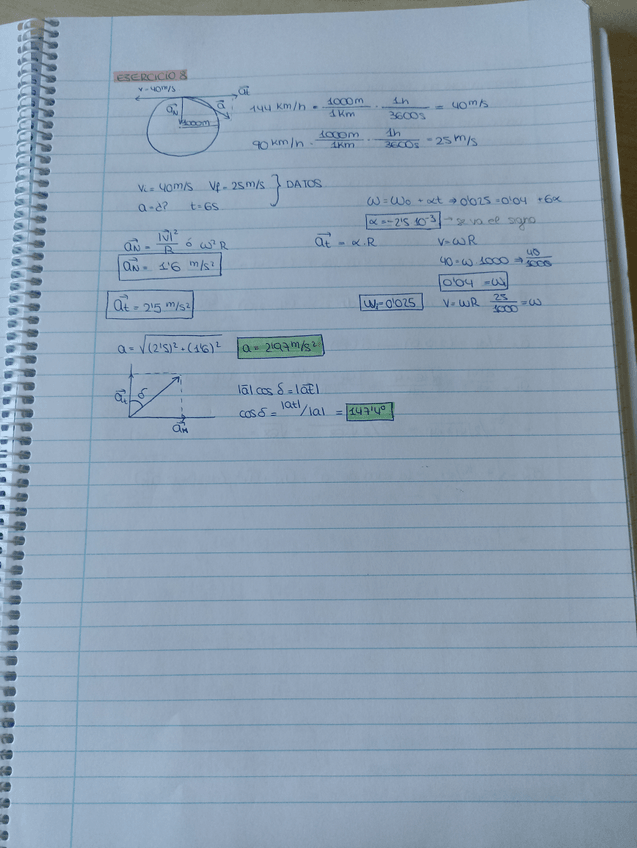 EJERCICIO 8
v=40m/s
at
aN a
1000m
144 km/h • 1000m/1km · 1h/3600s = 40m/s
90 km/h · 1000m/1km · 1h/3600s = 25m/s
Vi = 40m/s Vf = 25m/s } DATOS
a=¿? t=6s
ω = ω0 + αt ⇒ 0'025 = 0'04 + 6α
α = -2'5 10⁻³ → se va el signo
aN = |v|²/R ó ω²R
at = α·R
v = ωR
aN = 1'6 m/s²
40 = ω 1000 ⇒ 40/1000
0'04 = ω
at = 2'5 m/s²
ωf = 0'025
v = ωR 25/1000 = ω
a = √(2'5)² + (1'6)²
a = 2'97m/s²
at δ
|a| cos δ = |at|
cos δ = |at|/|a| = 147'4º
aN